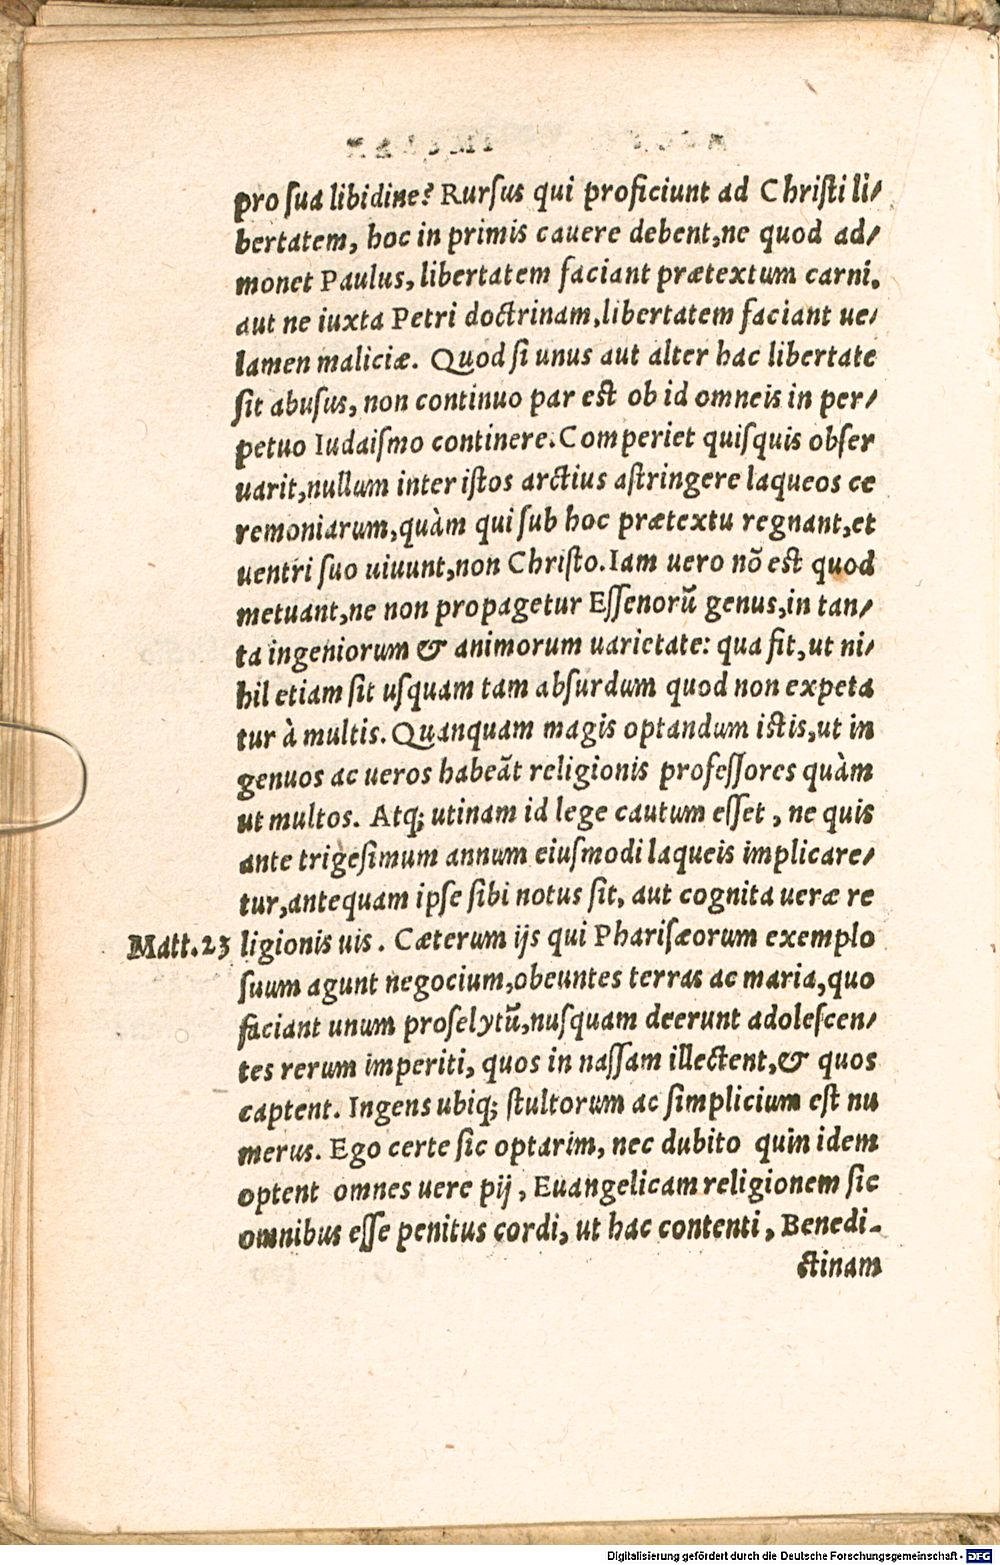 pro sua libidine? Rursus qui proficiunt ad Christi li/
bertatem, hoc in primis cauere debent,ne quod ad/
monet Paulus, libertatem faciant prætextum carni.
aut ne iuxta Petri doctrinam,libertatem faciant ue/
lamen maliciæ. Quod si unus aut alter hac libertate
sit abusus, non continuo par est ob id omneis in per/
petuo Iudaismo continere. Comperiet quisquis obser
uarit,nullum inter istos arctius astringere laqueos ce
remoniarum,quàm qui sub hoc prætextu regnant,et
uentri suo uiuunt,non Christo. Iam uero nõ est quod
metuant,ne non propagetur Essenorũ genus,in tan/
ta ingeniorum & animorum uarietate: qua fit, ut ni/
hil etiam sit usquam tam absurdum quod non expeta
tur à multis. Quanquam magis optandum istis,ut in
genuos ac ueros habeãt religionis professores quàm
ut multos. Atq; utinam id lege cautum esset, ne quis
ante trigesimum annum eiusmodi laqueis implicare/
tur,antequam ipse sibi notus sit, aut cognita ueræ re
Matt.23 ligionis uis. Cæterum ijs qui Pharisæorum exemplo
suum agunt negocium,obeuntes terras ac maria,quo
faciant unum proselytũ,nusquam deerunt adolescen/
tes rerum imperiti, quos in nassam illectent,& quos
captent. Ingens ubiq; stultorum ac simplicium est nu
merus. Ego certe sic optarim, nec dubito quin idem
optent omnes uere pij, Euangelicam religionem sic
omnibus esse penitus cordi, ut hac contenti, Benedi-
ctinam
Digitalisierung gefördert durch die Deutsche Forschungsgemeinschaft - DFG